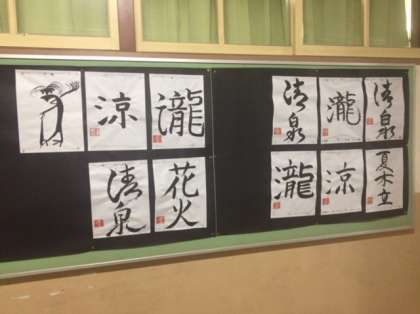 清泉
瀧
清泉
夏木立
涼
瀧
瀧
涼
花火
清泉